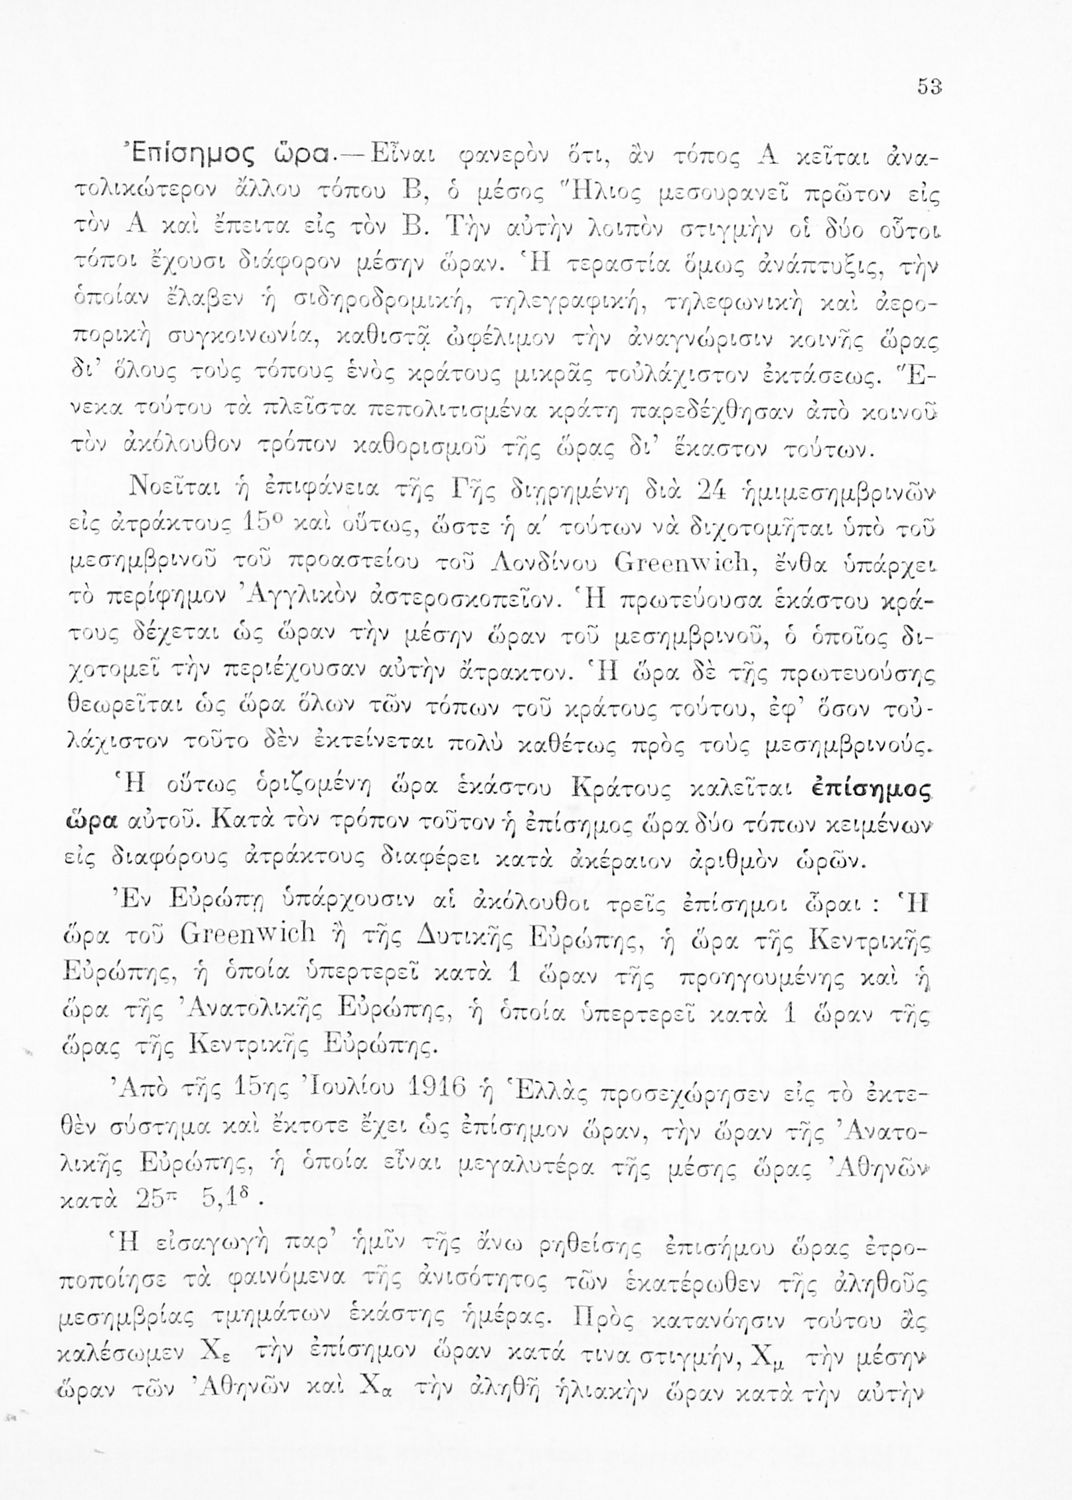 53
Ἐπίσημος ὥρα.— Εἶναι φανερὸν ὅτι, ἂν τόπος Α κεῖται ἀνα-
τολικώτερον ἄλλου τόπου Β, ὁ μέσος Ἥλιος μεσουρανεῖ πρῶτον εἰς
τὸν Α καὶ ἔπειτα εἰς τὸν Β. Τὴν αὐτὴν λοιπὸν στιγμὴν οἱ δύο οὗτοι
τόποι ἔχουσι διάφορον μέσην ὥραν. Ἡ τεραστία ὅμως ἀνάπτυξις, τὴν
ὁποίαν ἔλαβεν ἡ σιδηροδρομική, τηλεγραφική, τηλεφωνικὴ καὶ ἀερο-
πορικὴ συγκοινωνία, καθιστᾷ ὠφέλιμον τὴν ἀναγνώρισιν κοινῆς ὥρας
δι’ ὅλους τοὺς τόπους ἑνὸς κράτους μικρᾶς τοὐλάχιστον ἐκτάσεως. Ἕ-
νεκα τούτου τὰ πλεῖστα πεπολιτισμένα κράτη παρεδέχθησαν ἀπὸ κοινοῦ
τὸν ἀκόλουθον τρόπον καθορισμοῦ τῆς ὥρας δι’ ἕκαστον τούτων.
Νοεῖται ἡ ἐπιφάνεια τῆς Γῆς διῃρημένη διὰ 24 ἡμιμεσημβρινῶν
εἰς ἀτράκτους 15⁰ καὶ οὕτως, ὥστε ἡ α′ τούτων νὰ διχοτομῆται ὑπὸ τοῦ
μεσημβρινοῦ τοῦ προαστείου τοῦ Λονδίνου Greenwich, ἔνθα ὑπάρχει
τὸ περίφημον Ἀγγλικὸν ἀστεροσκοπεῖον. Ἡ πρωτεύουσα ἑκάστου κρά-
τους δέχεται ὡς ὥραν τὴν μέσην ὥραν τοῦ μεσημβρινοῦ, ὁ ὁποῖος δι-
χοτομεῖ τὴν περιέχουσαν αὐτὴν ἄτρακτον. Ἡ ὥρα δὲ τῆς πρωτευούσης
θεωρεῖται ὡς ὥρα ὅλων τῶν τόπων τοῦ κράτους τούτου, ἐφ’ ὅσον τοὐ-
λάχιστον τοῦτο δὲν ἐκτείνεται πολὺ καθέτως πρὸς τοὺς μεσημβρινούς.
Ἡ οὕτως ὁριζομένη ὥρα ἑκάστου Κράτους καλεῖται ἐπίσημος
ὥρα αὐτοῦ. Κατὰ τὸν τρόπον τοῦτον ἡ ἐπίσημος ὥρα δύο τόπων κειμένων
εἰς διαφόρους ἀτράκτους διαφέρει κατὰ ἀκέραιον ἀριθμὸν ὡρῶν.
Ἐν Εὐρώπῃ ὑπάρχουσιν αἱ ἀκόλουθοι τρεῖς ἐπίσημοι ὧραι : Ἡ
ὥρα τοῦ Greenwich ἢ τῆς Δυτικῆς Εὐρώπης, ἡ ὥρα τῆς Κεντρικῆς
Εὐρώπης, ἡ ὁποία ὑπερτερεῖ κατὰ 1 ὥραν τῆς προηγουμένης καὶ ἡ
ὥρα τῆς Ἀνατολικῆς Εὐρώπης, ἡ ὁποία ὑπερτερεῖ κατὰ 1 ὥραν τῆς
ὥρας τῆς Κεντρικῆς Εὐρώπης.
Ἀπὸ τῆς 15ης Ἰουλίου 1916 ἡ Ἑλλὰς προσεχώρησεν εἰς τὸ ἐκτε-
θὲν σύστημα καὶ ἔκτοτε ἔχει ὡς ἐπίσημον ὥραν, τὴν ὥραν τῆς Ἀνατο-
λικῆς Εὐρώπης, ἡ ὁποία εἶναι μεγαλυτέρα τῆς μέσης ὥρας Ἀθηνῶν
κατὰ 25π 5,1δ .
Ἡ εἰσαγωγὴ παρ’ ἡμῖν τῆς ἄνω ῥηθείσης ἐπισήμου ὥρας ἐτρο-
ποποίησε τὰ φαινόμενα τῆς ἀνισότητος τῶν ἑκατέρωθεν τῆς ἀληθοῦς
μεσημβρίας τμημάτων ἑκάστης ἡμέρας. Πρὸς κατανόησιν τούτου ἂς
καλέσωμεν Χε τὴν ἐπίσημον ὥραν κατά τινα στιγμήν, Χμ τὴν μέσην
ὥραν τῶν Ἀθηνῶν καὶ Χα τὴν ἀληθῆ ἡλιακὴν ὥραν κατὰ τὴν αὐτὴν